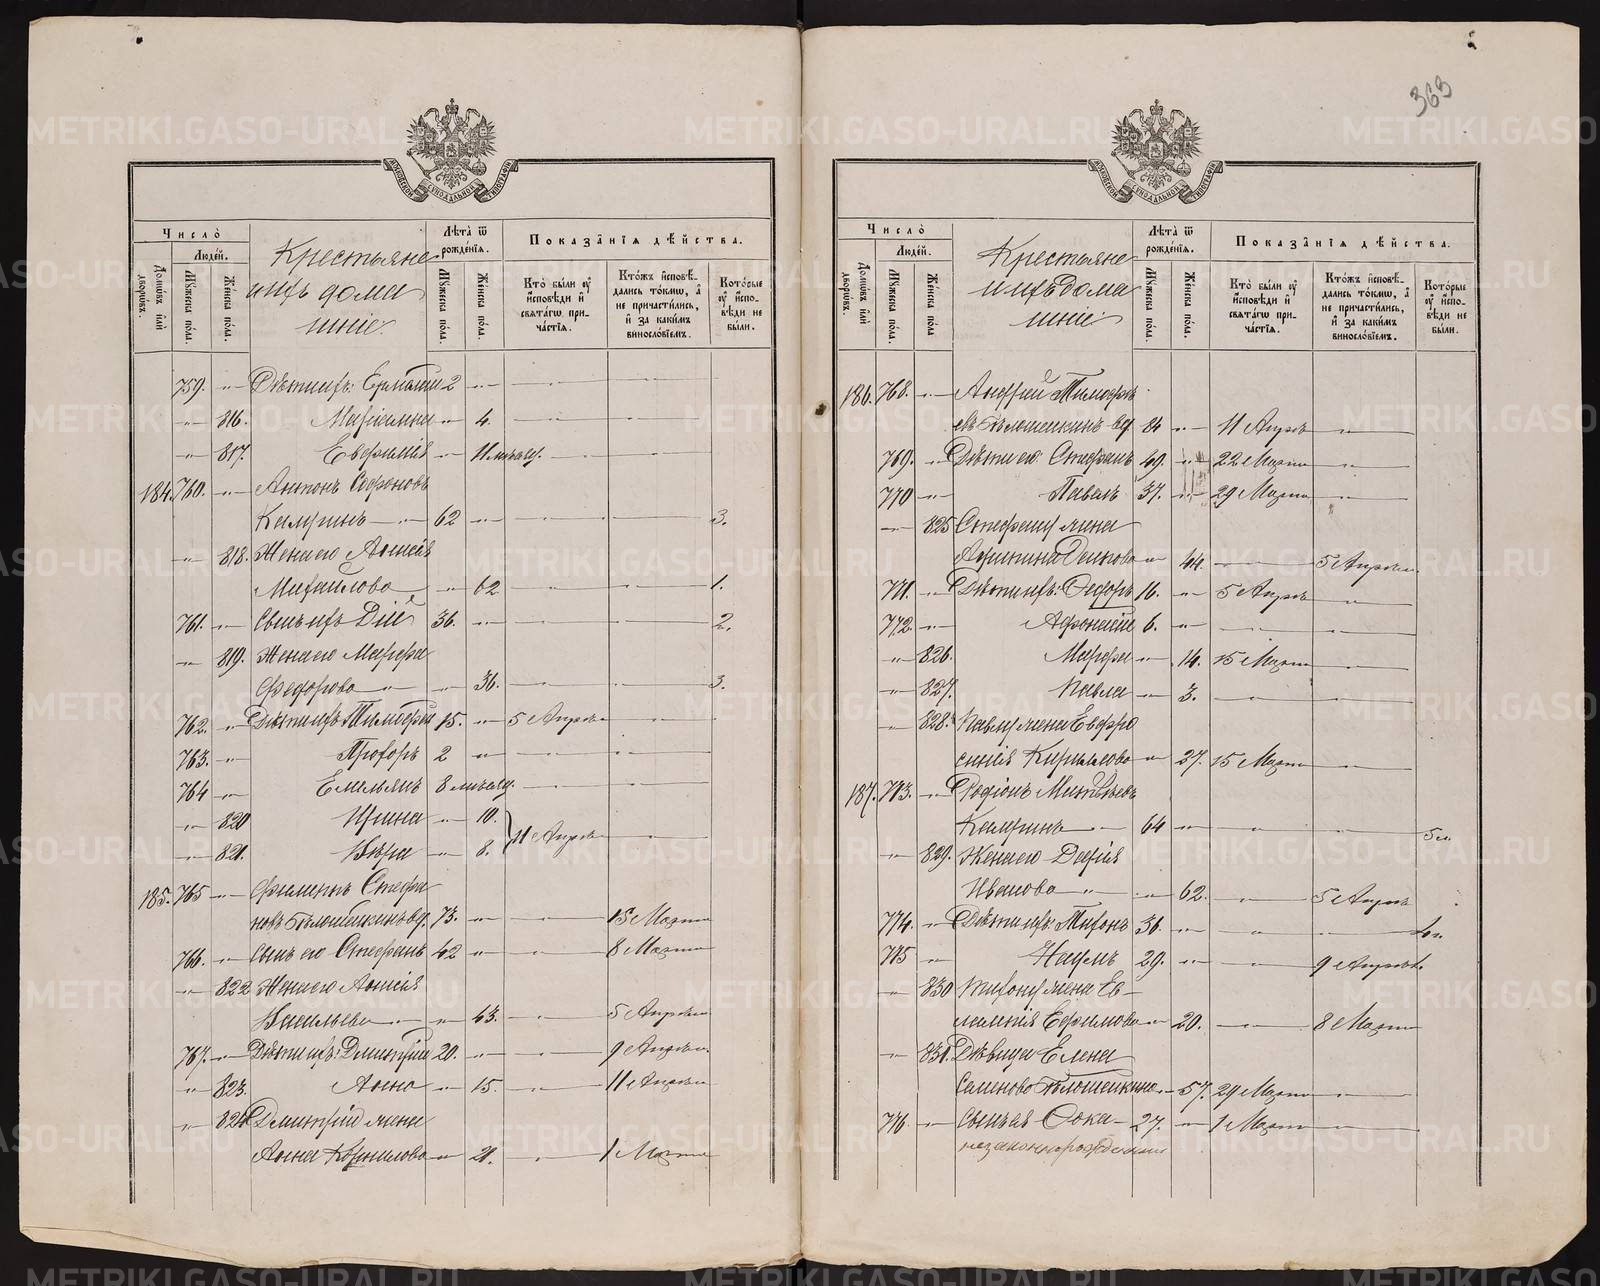 363
Число̀
Людей.
Домѡвъ или дворѡвъ.
Мꙋжеска пола.
Женска пола.
Крестьяне
ихъ дома
шніе
Лѣта ѿ рожденія.
Мꙋжеска пола.
Женска пола.
Показанія дѣйства.
Кто были ᲂу҆ исповѣди и свѧтагѡ причастія.
Ктожъ исповѣдались токмѡ, а не причастились, и за какимъ винословіемъ.
Которые ᲂу҆ исповѣди не были.
759. -„- Дѣти ихъ: 2 -„-
-„- 816. -„- 4.
-„- 817. Евфимія -„- 11 мѣсяц.
184. 760. -„- Антонъ Софоновъ
62 -„- 3.
-„- 818. Жена его
Михайлова -„- 62 1.
761. -„- Сынъ ихъ Дій 36. -„- 2.
-„- 819. Жена его Марфа
Федорова -„- 36. 3.
762. -„- Дѣти ихъ Тимофей 15. -„- 5 Апрѣля
763. -„- Прохоръ 2 -„-
764 -„- Емельянъ 8 мѣсяц.
-„- 820 Ирина -„- 10.
-„- 821. Вѣра -„- 8. 11 Апрѣля
185. 765 -„- Филиппъ Стефа
новъ вд. 73. -„- 15 Марта
766. -„- Сынъ его Стефанъ 42 -„- 8 Марта
-„- 822 Жена его
Васильева -„- 43. 5 Апрѣля
767. -„- Дѣти ихъ: Димитрій 20. -„- 9 Апрѣля
-„- 823. Анна -„- 15. 11 Апрѣля
-„- 824 Димитрія жена
Анна Корнилова -„- 21. 1 Марта
Число̀
Людей.
Домѡвъ или дворѡвъ.
Мꙋжеска пола.
Женска пола.
Крестьяне
ихъ дома
шніе
Лѣта ѿ рожденія.
Мꙋжеска пола.
Женска пола.
Показанія дѣйства.
Кто были ᲂу҆ исповѣди и свѧтагѡ причастія.
Ктожъ исповѣдались токмѡ, а не причастились, и за какимъ винословіемъ.
Которые ᲂу҆ исповѣди не были.
186. 768. -„- Андрей Тимофѣ
евъ Бѣлошейкинъ вд 84 -„- 11 Апрѣля
769. -„- Дѣти его Стефанъ 49. -„- 22 Марта
770 -„- Павелъ 37. -„- 29 Марта
-„- 825 Стефану жена
-„- 44. 5 Апрѣля
771. -„- Дѣти ихъ: Ѳедоръ 16. -„- 5 Апрѣля
772. -„- Афанасій 6. -„-
-„- 826. Марфа -„- 14. 15 Марта
-„- 827. Павла -„- 3.
-„- 828. Павлу жена Евфро
синія Кирилова -„- 37. 15 Марта
187. 773. -„- Родіонъ Матвѣевъ
64 -„-
-„- 829. Жена его Дарія
Иванова -„- 62. 5 Апрѣля
774. -„- Дѣти ихъ: Тихонъ 36. -„-
775 -„- Наумъ 29. -„- 9 Апрѣля
-„- 830 Тихону жена
Ефимова -„- 20. 8 Марта
-„- 831. Дѣвица Елена
Семенова Бѣлошейкина -„- 57. 29 Марта
776. -„- Сынъ ея Фока 27. -„- 1 Марта
незаконнорожденный
METRIKI.GASO-URAL.RU